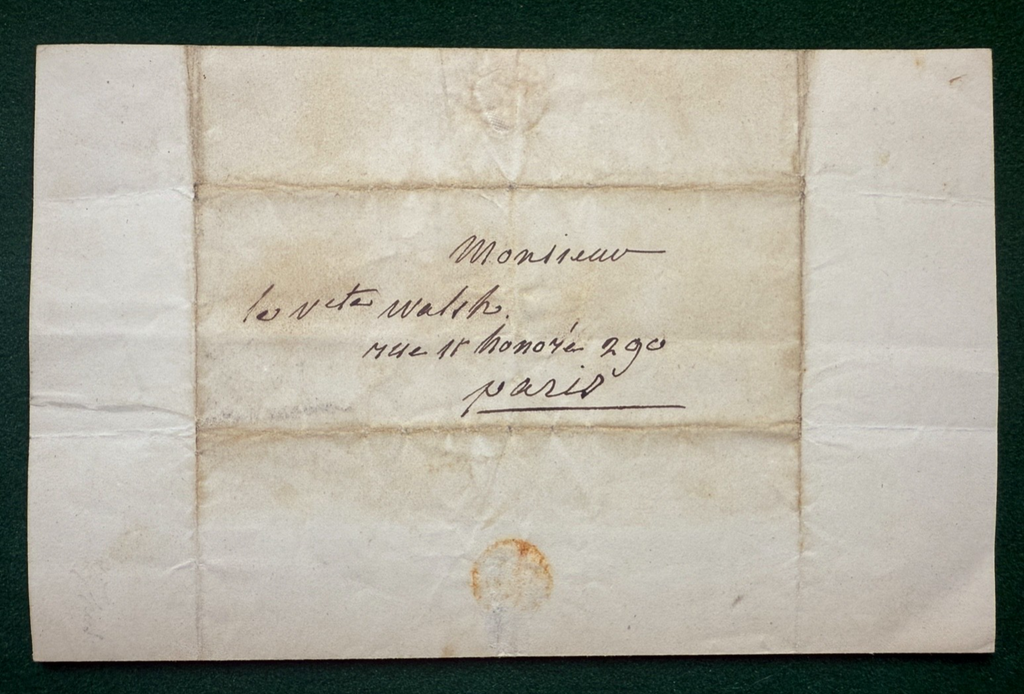 Monsieur
le Vcte Walsh.
rue St honoré 290
paris